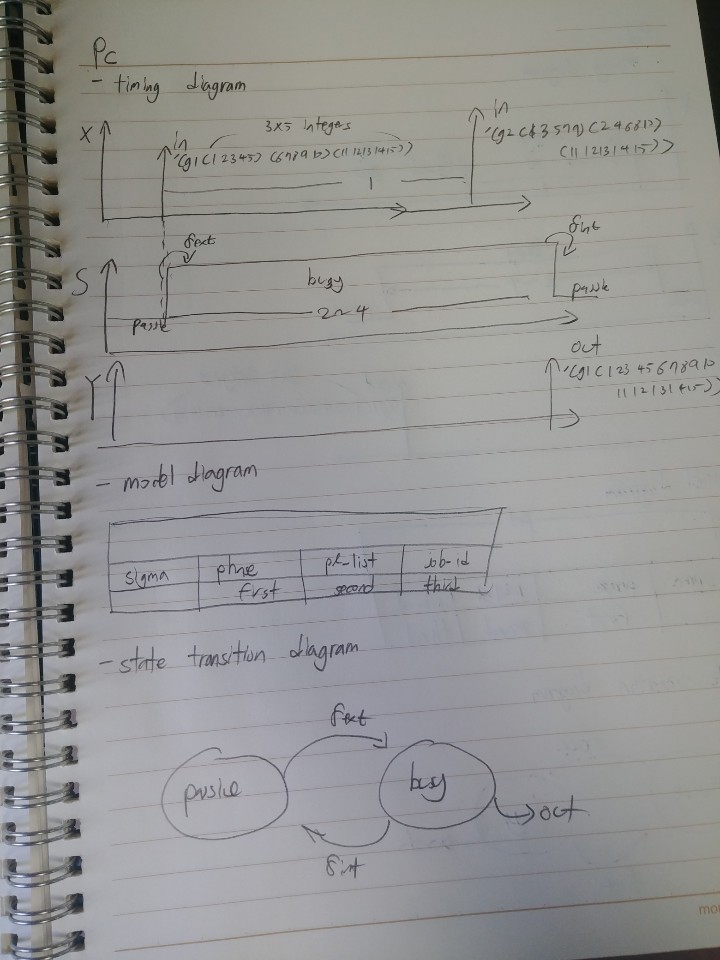 PC
- timing diagram
X
in
3x5 integers
'(g1 (1 2 3 4 5) (6 7 8 9 10) (11 12 13 14 15))
1
in
'(g2 (1 3 5 7 9) (2 4 6 8 10)
(11 12 13 14 15))
S
δext
busy
δint
passive
2~4
passive
Y
out
'(g1 (1 2 3 4 5 6 7 8 9 10
11 12 13 14 15))
- model diagram
sigma phase pk-list job-id
first second third
- state transition diagram
δext
passive
busy
out
δint